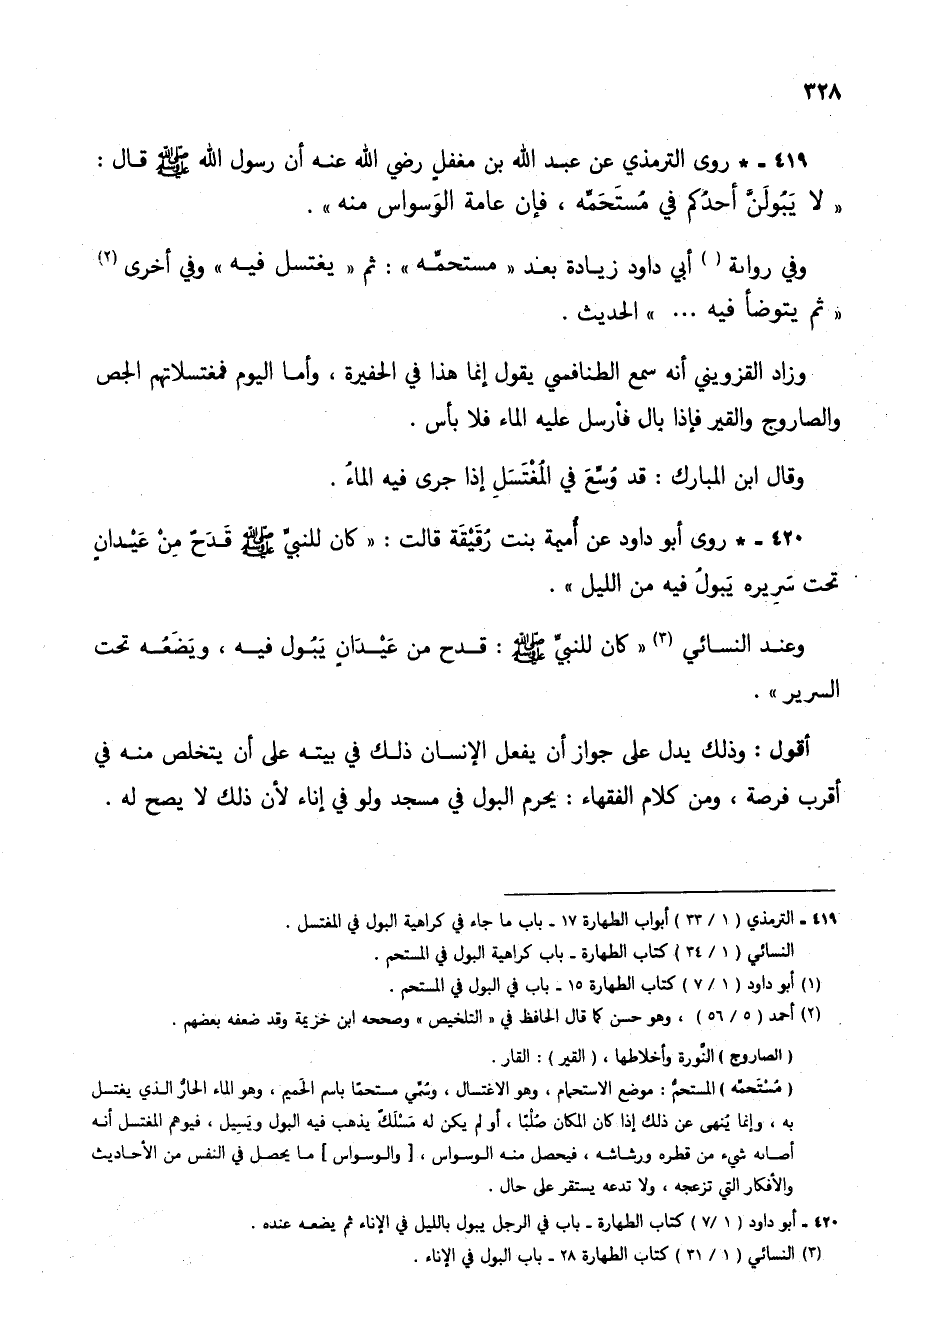 ٣٢٨
٤١٩ ـ * روى الترمذي عن عبد الله بن مغفلٍ رضي الله عنه أن رسول الله ﷺ قال :
« لا يَبُولَنَّ أحدُكم في مُستَحَمِّه ، فإن عامة الوَسواس منه » .
وفي رواية ( ) أبي داود زيادة بعد « مستحمِّه » : ثم « يغتسل فيه » وفي أخرى (٢)
« ثم يتوضأ فيه ... » الحديث .
وزاد القزويني أنه سمع الطنافسي يقول إنما هذا في الحفيرة ، وأما اليوم فمغتسلاتهم الجص
والصاروج والقير فإذا بال فأرسل عليه الماء فلا بأس .
وقال ابن المبارك : قد وُسِّعَ في المُغْتَسَلِ إذا جرى فيه الماءُ .
٤٢٠ ـ * روى أبو داود عن أُميمة بنت رُقَيْقَة قالت : « كان للنبيِّ ﷺ قَدَحٌ مِنْ عَيْدانٍ
تحت سَرِيره يَبولُ فيه من الليل » .
وعند النسائي (٣) « كان للنبيِّ ﷺ : قدح من عَيْدَانٍ يَبُول فيه ، ويَضَعُه تحت
السرير » .
أقول : وذلك يدل على جواز أن يفعل الإنسان ذلك في بيته على أن يتخلص منه في
أقرب فرصة ، ومن كلام الفقهاء : يحرم البول في مسجد ولو في إناء لأن ذلك لا يصح له .
٤١٩ ـ الترمذي ( ١ / ٣٣ ) أبواب الطهارة ١٧ ـ باب ما جاء في كراهية البول في المغتسل .
النسائي ( ١ / ٣٤ ) كتاب الطهارة ـ باب كراهية البول في المستحم .
(١) أبو داود ( ١ / ٧ ) كتاب الطهارة ١٥ ـ باب في البول في المستحم .
(٢) أحمد ( ٥ / ٥٦ ) ، وهو حسن كما قال الحافظ في « التلخيص » وصححه ابن خزيمة وقد ضعفه بعضهم .
( الصاروج ) النُّورة وأخلاطها ، ( القير ) : القار .
( مُسْتَحمِّه ) المستحمُّ : موضع الاستحمام ، وهو الاغتسال ، وسُمِّي مستحمًا باسم الحَميم ، وهو الماء الحارُّ الذي يغتسل
به ، وإنما يُنهى عن ذلك إذا كان المكان صُلْبًا ، أو لم يكن له مَسْلَكٌ يذهب فيه البول ويَسيل ، فيوهم المغتسل أنه
أصابه شيء من قطره ورشاشه ، فيحصل منه الوسواس ، [ والوسواس ] ما يحصل في النفس من الأحاديث
والأفكار التي تزعجه ، ولا تدعه يستقر على حال .
٤٢٠ ـ أبو داود ( ١ /٧ ) كتاب الطهارة ـ باب في الرجل يبول بالليل في الإناء ثم يضعه عنده .
(٣) النسائي ( ١ / ٣١ ) كتاب الطهارة ٢٨ ـ باب البول في الإناء .